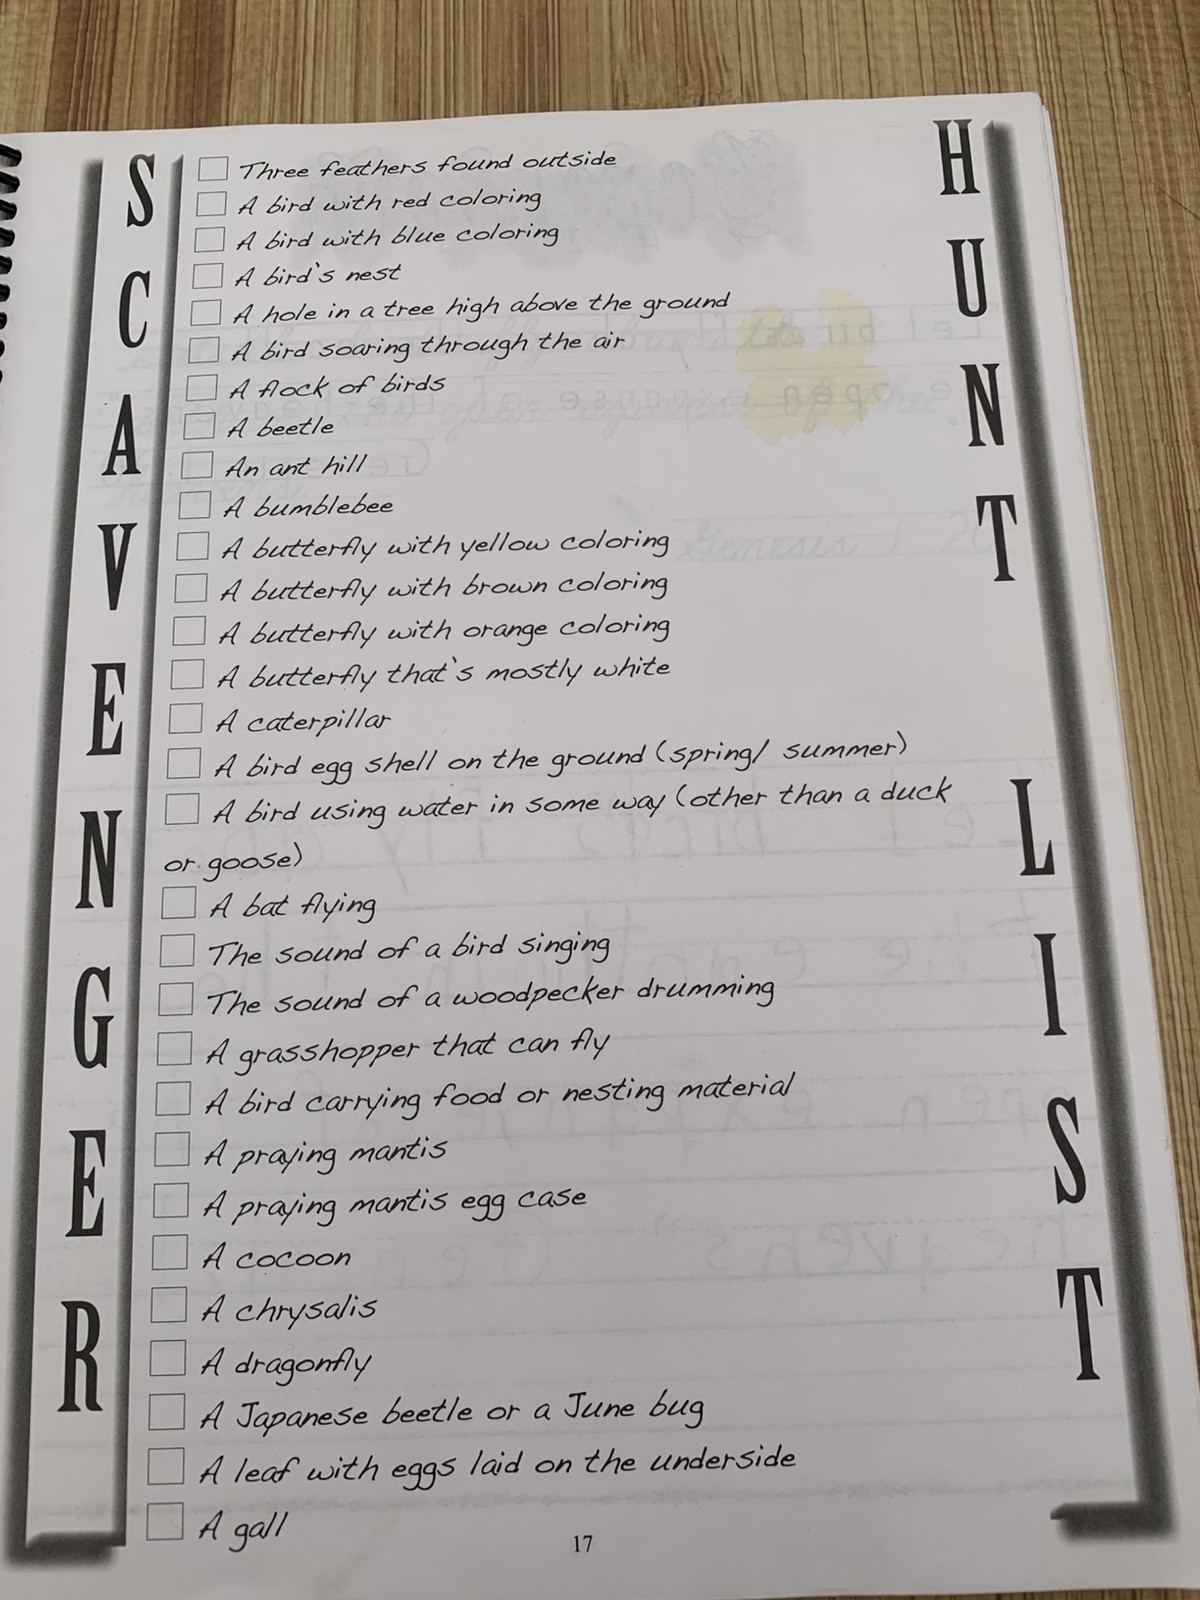 SCAVENGER
HUNT LIST
Three feathers found outside
A bird with red coloring
A bird with blue coloring
A bird's nest
A hole in a tree high above the ground
A bird soaring through the air
A flock of birds
A beetle
An ant hill
A bumblebee
A butterfly with yellow coloring
A butterfly with brown coloring
A butterfly with orange coloring
A butterfly that's mostly white
A caterpillar
A bird egg shell on the ground (spring/ summer)
A bird using water in some way (other than a duck
or goose)
A bat flying
The sound of a bird singing
The sound of a woodpecker drumming
A grasshopper that can fly
A bird carrying food or nesting material
A praying mantis
A praying mantis egg case
A cocoon
A chrysalis
A dragonfly
A Japanese beetle or a June bug
A leaf with eggs laid on the underside
A gall
17